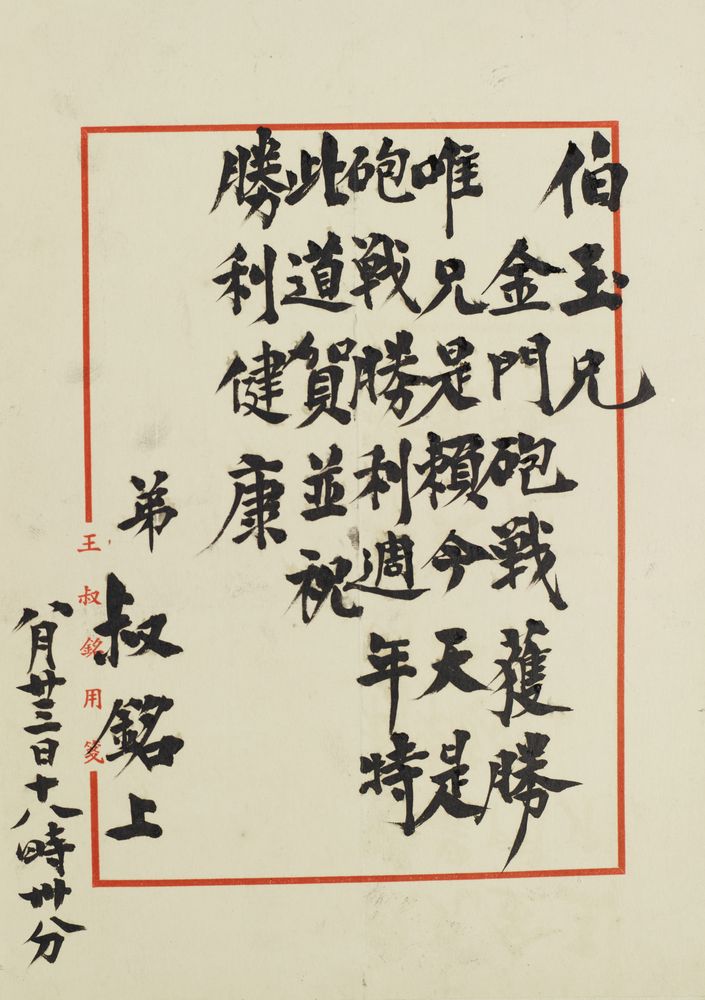 伯玉兄
金門砲戰獲勝
唯兄是賴今天是
砲戰勝利週年特
此道賀並祝
勝利健康
弟叔銘上
八月廿三日十八時卅分
王叔銘用箋